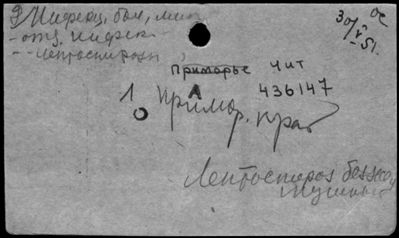 Инфекц. бол, мип
- отд. инфек -
- - лептоспирозы
30/V 51.
Приморье Чит
A 436147
1 Примор. край
Лептоспироз безжел
тушный